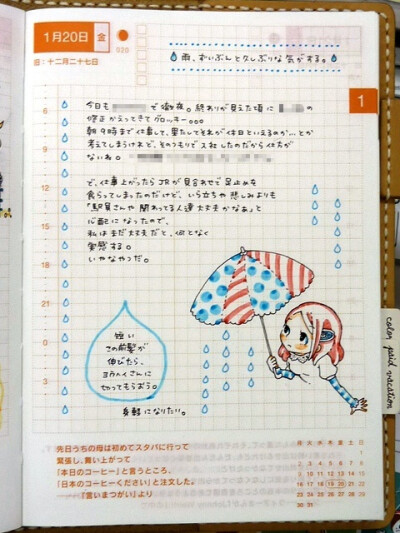 1月20日 金
020
旧：十二月二十七日
雨、ずいぶんと久しぶりな気がする。
1
今日も で徹夜。終わりが見えた頃に の
修正がえってきてグロッキー。。。
朝9時まで仕事して、果たしてそれが休日といえるのか…とか
考えてしまうけれど、そのつもりで入社したのだから仕方が
ないね。
で、仕事上がったらJRが見合わせで足止めを
食らってしまったのだけど、いら立ちや悲しみよりも
「駅員さんや関わってる人達大丈夫かなぁ」って
心配になったので、
私はまだ大丈夫だと、何となく
実感する。
いやなやつだ。
6
9
12
15
18
21
0
3
短い
この前髪が
伸びたら、
ヨウヘイさんに
切ってもらおう。
身軽になりたい。
color paid vacation
先日うちの母は初めてスタバに行って
緊張し、舞い上がって
「本日のコーヒー」と言うところ、
「日本のコーヒーください」と注文した。
『言いまつがい』より
月 火 水 木 金 土 日
1
2 3 4 5 6 7 8
9 10 11 12 13 14 15
16 17 18 19 20 21 22
23 24 25 26 27 28 29
30 31